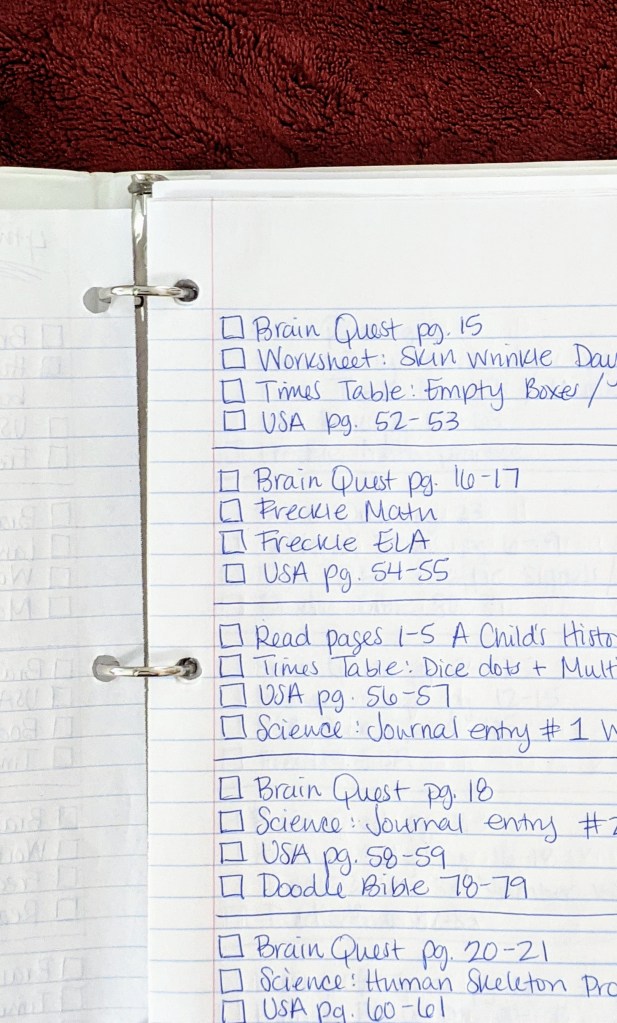 ☐ Brain Quest pg. 15
☐ Worksheet: Skin Wrinkle
☐ Times Table: Empty Boxes /
☐ USA pg. 52-53
☐ Brain Quest pg. 16-17
☐ Freckle Math
☐ Freckle ELA
☐ USA pg. 54-55
☐ Read pages 1-5 A Child's
☐ Times Table: Dice dots +
☐ USA pg. 56-57
☐ Science: Journal entry # 1
☐ Brain Quest pg. 18
☐ Science: Journal entry #
☐ USA pg. 58-59
☐ Doodle Bible 78-79
☐ Brain Quest pg. 20-21
☐ Science: Human Skeleton
☐ USA pg. 60-61